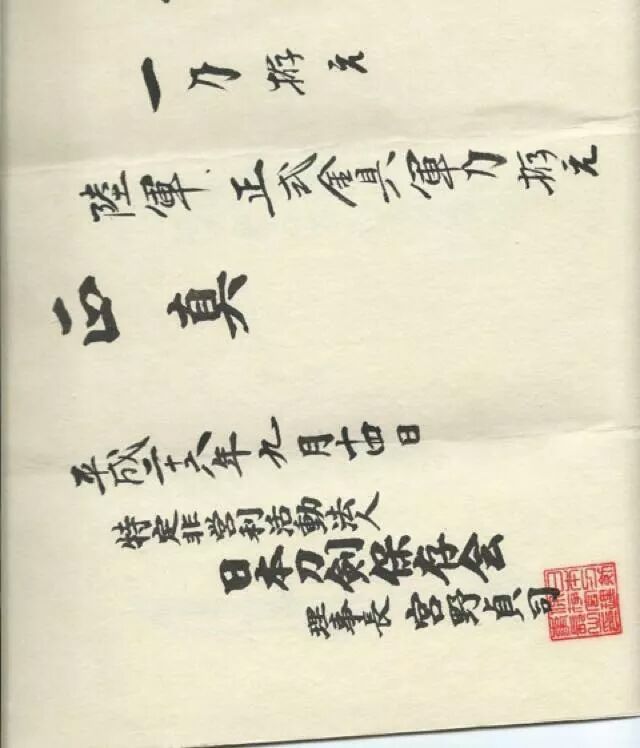 一刀拵え
陸軍正式金具軍刀拵え
正真
平成二十六年九月十四日
特定非営利活動法人
日本刀剣保存会
理事長 宮野貞司